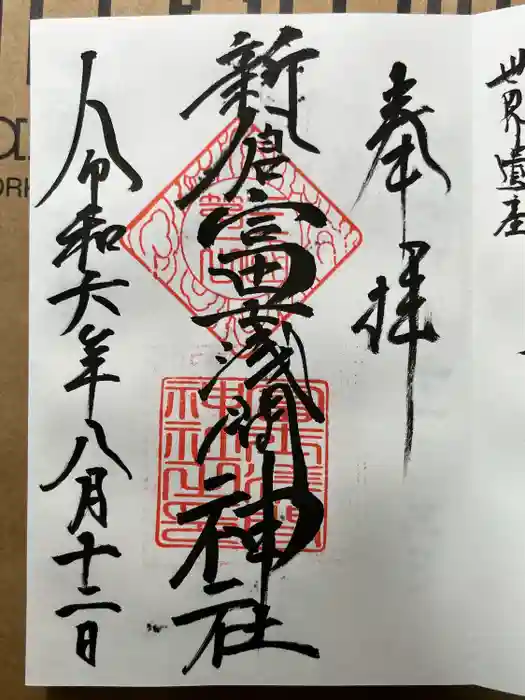 世界遺産
奉拝
新倉富士浅間神社
令和六年八月十二日